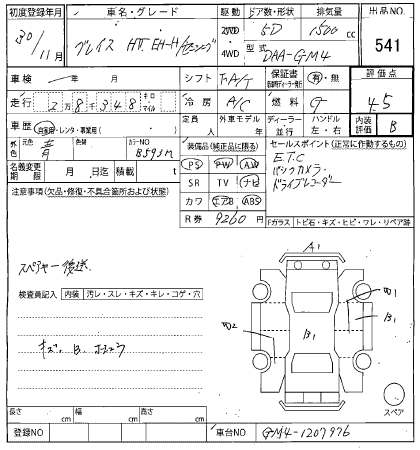 初度登録年月 車名・グレード 駆動 ドア数・形状 排気量 出品NO.
30/11月 グレイス HV EX-H/ 2WD 4WD 5D 1500cc 541
型式 DAA-GM4
車検 年 月 シフト F・A/T 保証書 有・無 評価点
走行 2万8348 キロ マイル 冷房 A/C 燃料 G 4.5
車歴 自家用・レンタ・事業用( ) 定員 人 外車モデル 年 ディーラー 並行 ハンドル 左・右 内装評価 B
外色 元色 青 色替 カラーNO B593M 装備品(純正品に限る) セールスポイント(正常に作動するもの)
名義変更期限 月 日迄 積載 t PS PW AW ETC
SR TV ナビ バックカメラ
注意事項(欠品・修復・不具合箇所および状態) カワ エアB ABS ドライブレコーダー
R券 9260
Fガラス トビ石・キズ・ヒビ・ワレ・リペア跡
A1
スペアキー後送
検査員記入 内装 汚レ・スレ・キズ・キレ・コゲ・穴
B1
B1
キズ、B、
スペア
長さ cm 幅 cm 高さ cm
登録NO 車台NO GM4-1207976